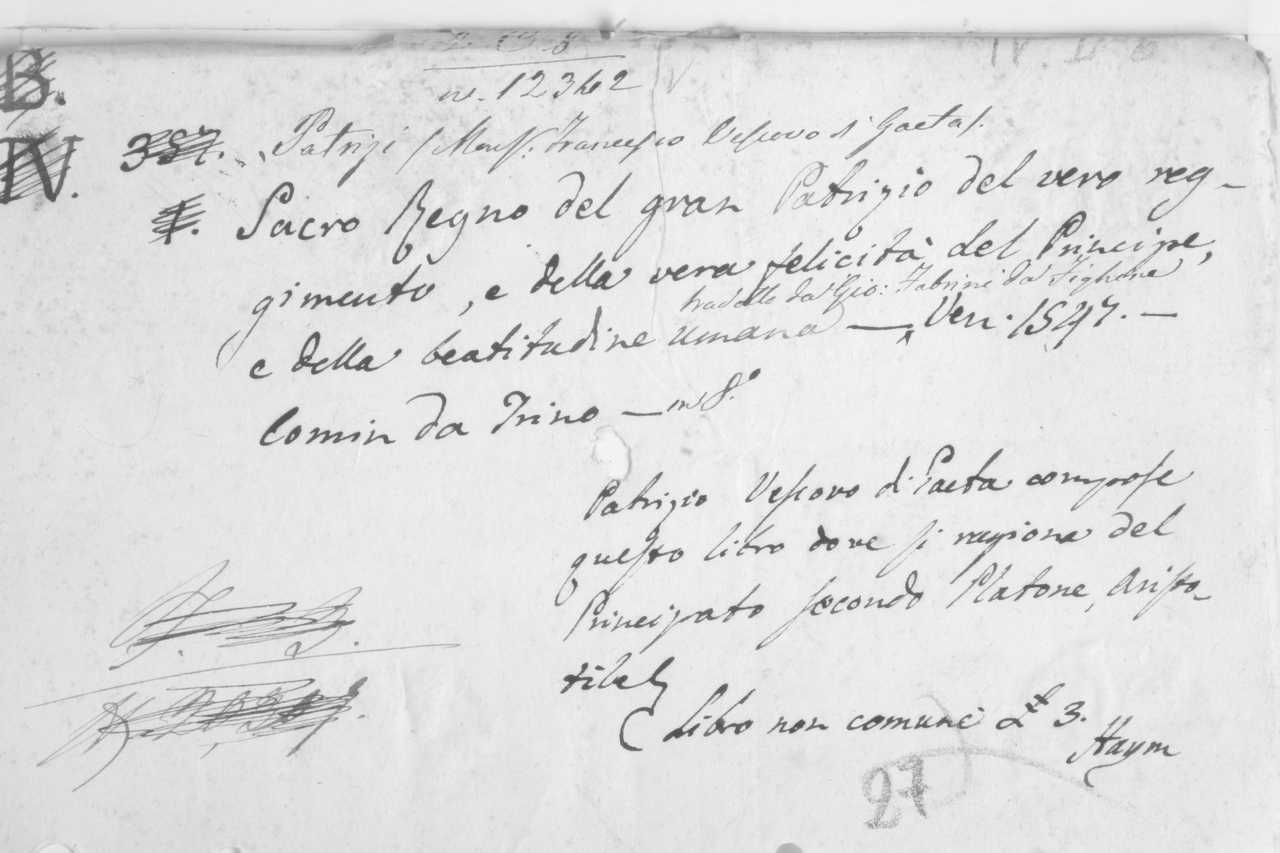 B.
n. 12362
IV. 387. Patrizi (Mons. Francesco Vescovo di Gaeta).
Sacro Regno del gran Patrizio del vero reg-
gimento, e della vera felicità del Principe,
tradotto da Gio: Fabrini da Fighine
e della beatitudine umana — Ven. 1547. —
Comin da Trino — in 8.º
Patrizio Vescovo di Gaeta compose
questo libro dove si ragiona del
Principato secondo Platone, Aristo-
tile
Libro non comune Lt 3.
Haym
27